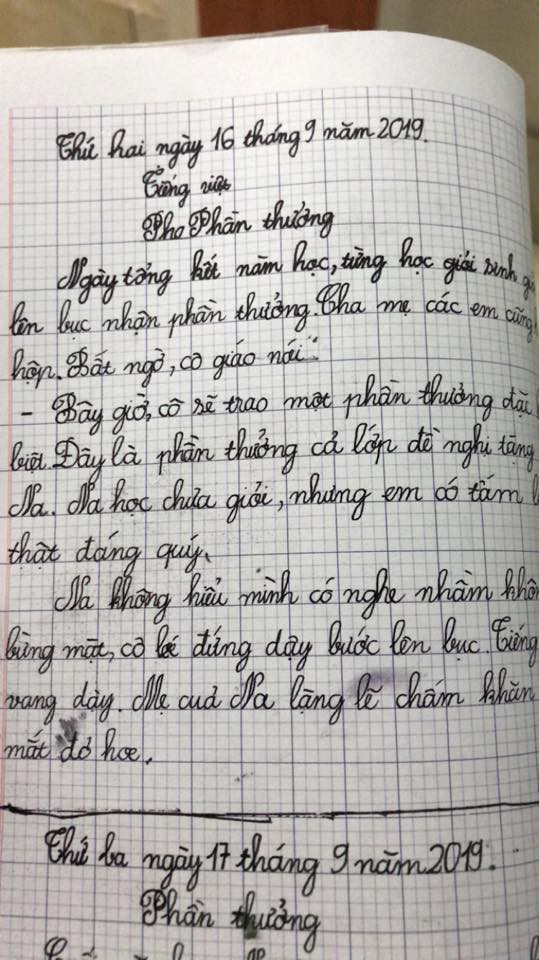 Thứ hai ngày 16 tháng 9 năm 2019.
Tiếng việt
Pho Phần thưởng
Ngày tổng kết năm học, từng học giỏi sinh
lên bục nhận phần thưởng. Cha mẹ các em cũng
hộp. Bất ngờ, cô giáo nói:
- Bây giờ, cô sẽ trao một phần thưởng đặc
biệt. Đây là phần thưởng cả lớp đề nghị tặng
Na. Na học chưa giỏi, nhưng em có tấm
thật đáng quý.
Na không hiểu mình có nghe nhầm
bừng mặt, cô bé đứng dậy bước lên bục. Tiếng
vang dậy. Mẹ cuả Na lặng lẽ chấm khăn
mắt đỏ hoe.
Thứ ba ngày 17 tháng 9 năm 2019.
Phần thưởng